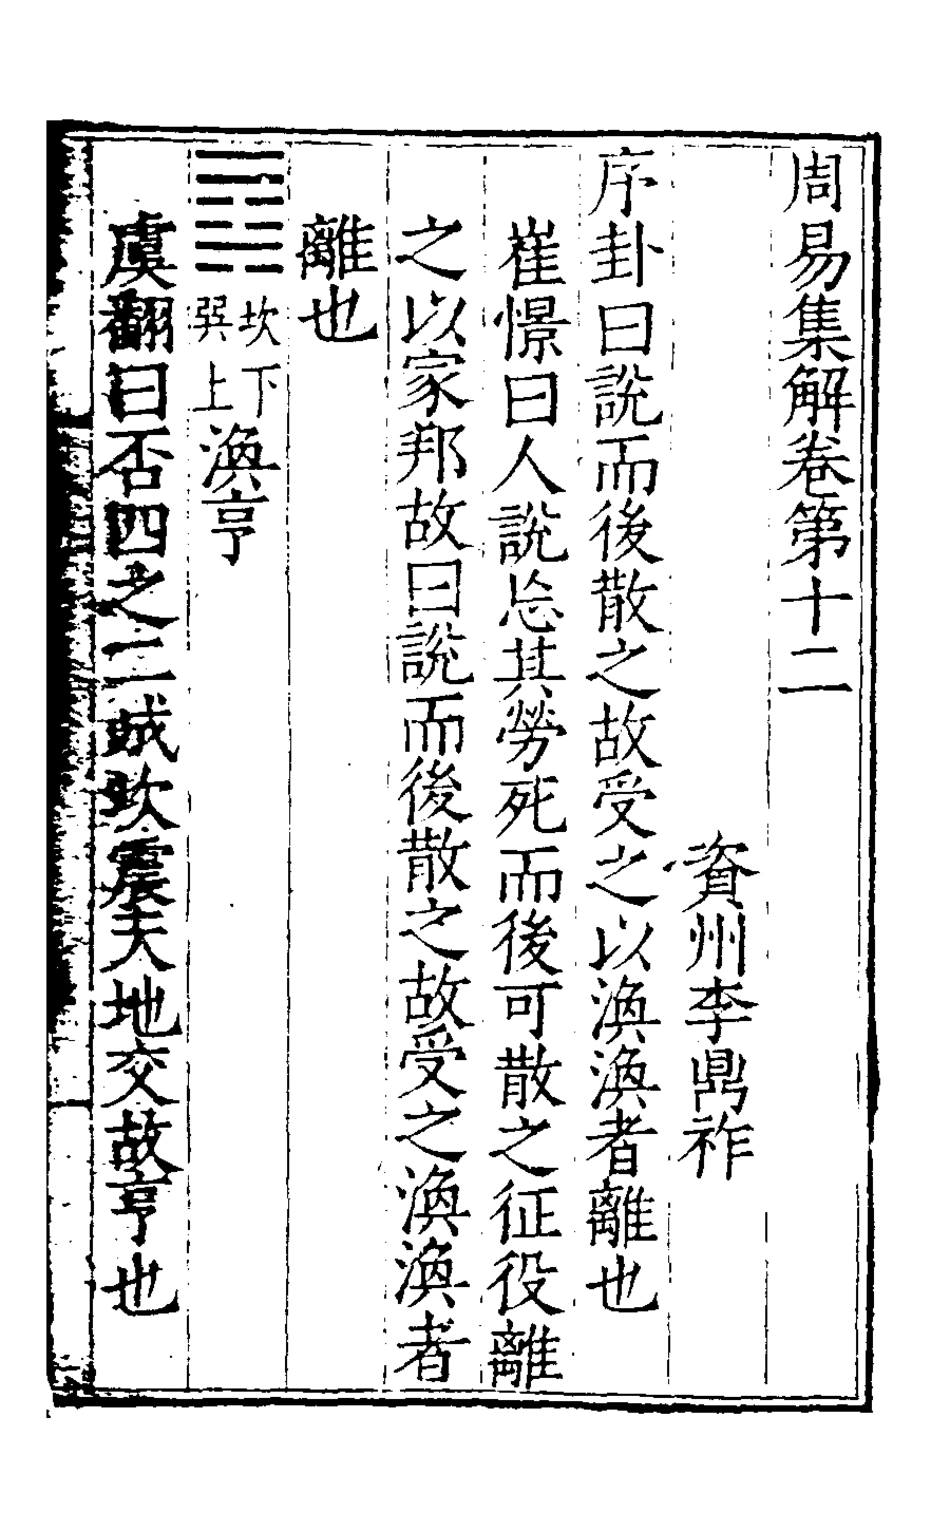 周易集解卷第十二
資州李鼎祚
序卦曰說而後散之故受之以渙渙者離也
崔憬曰人說忘其勞死而後可散之征役離
之以家邦故曰說而後散之故受之渙渙者
離也
䷺坎下巽上渙亨
虞翻曰否四之二成坎震天地交故亨也